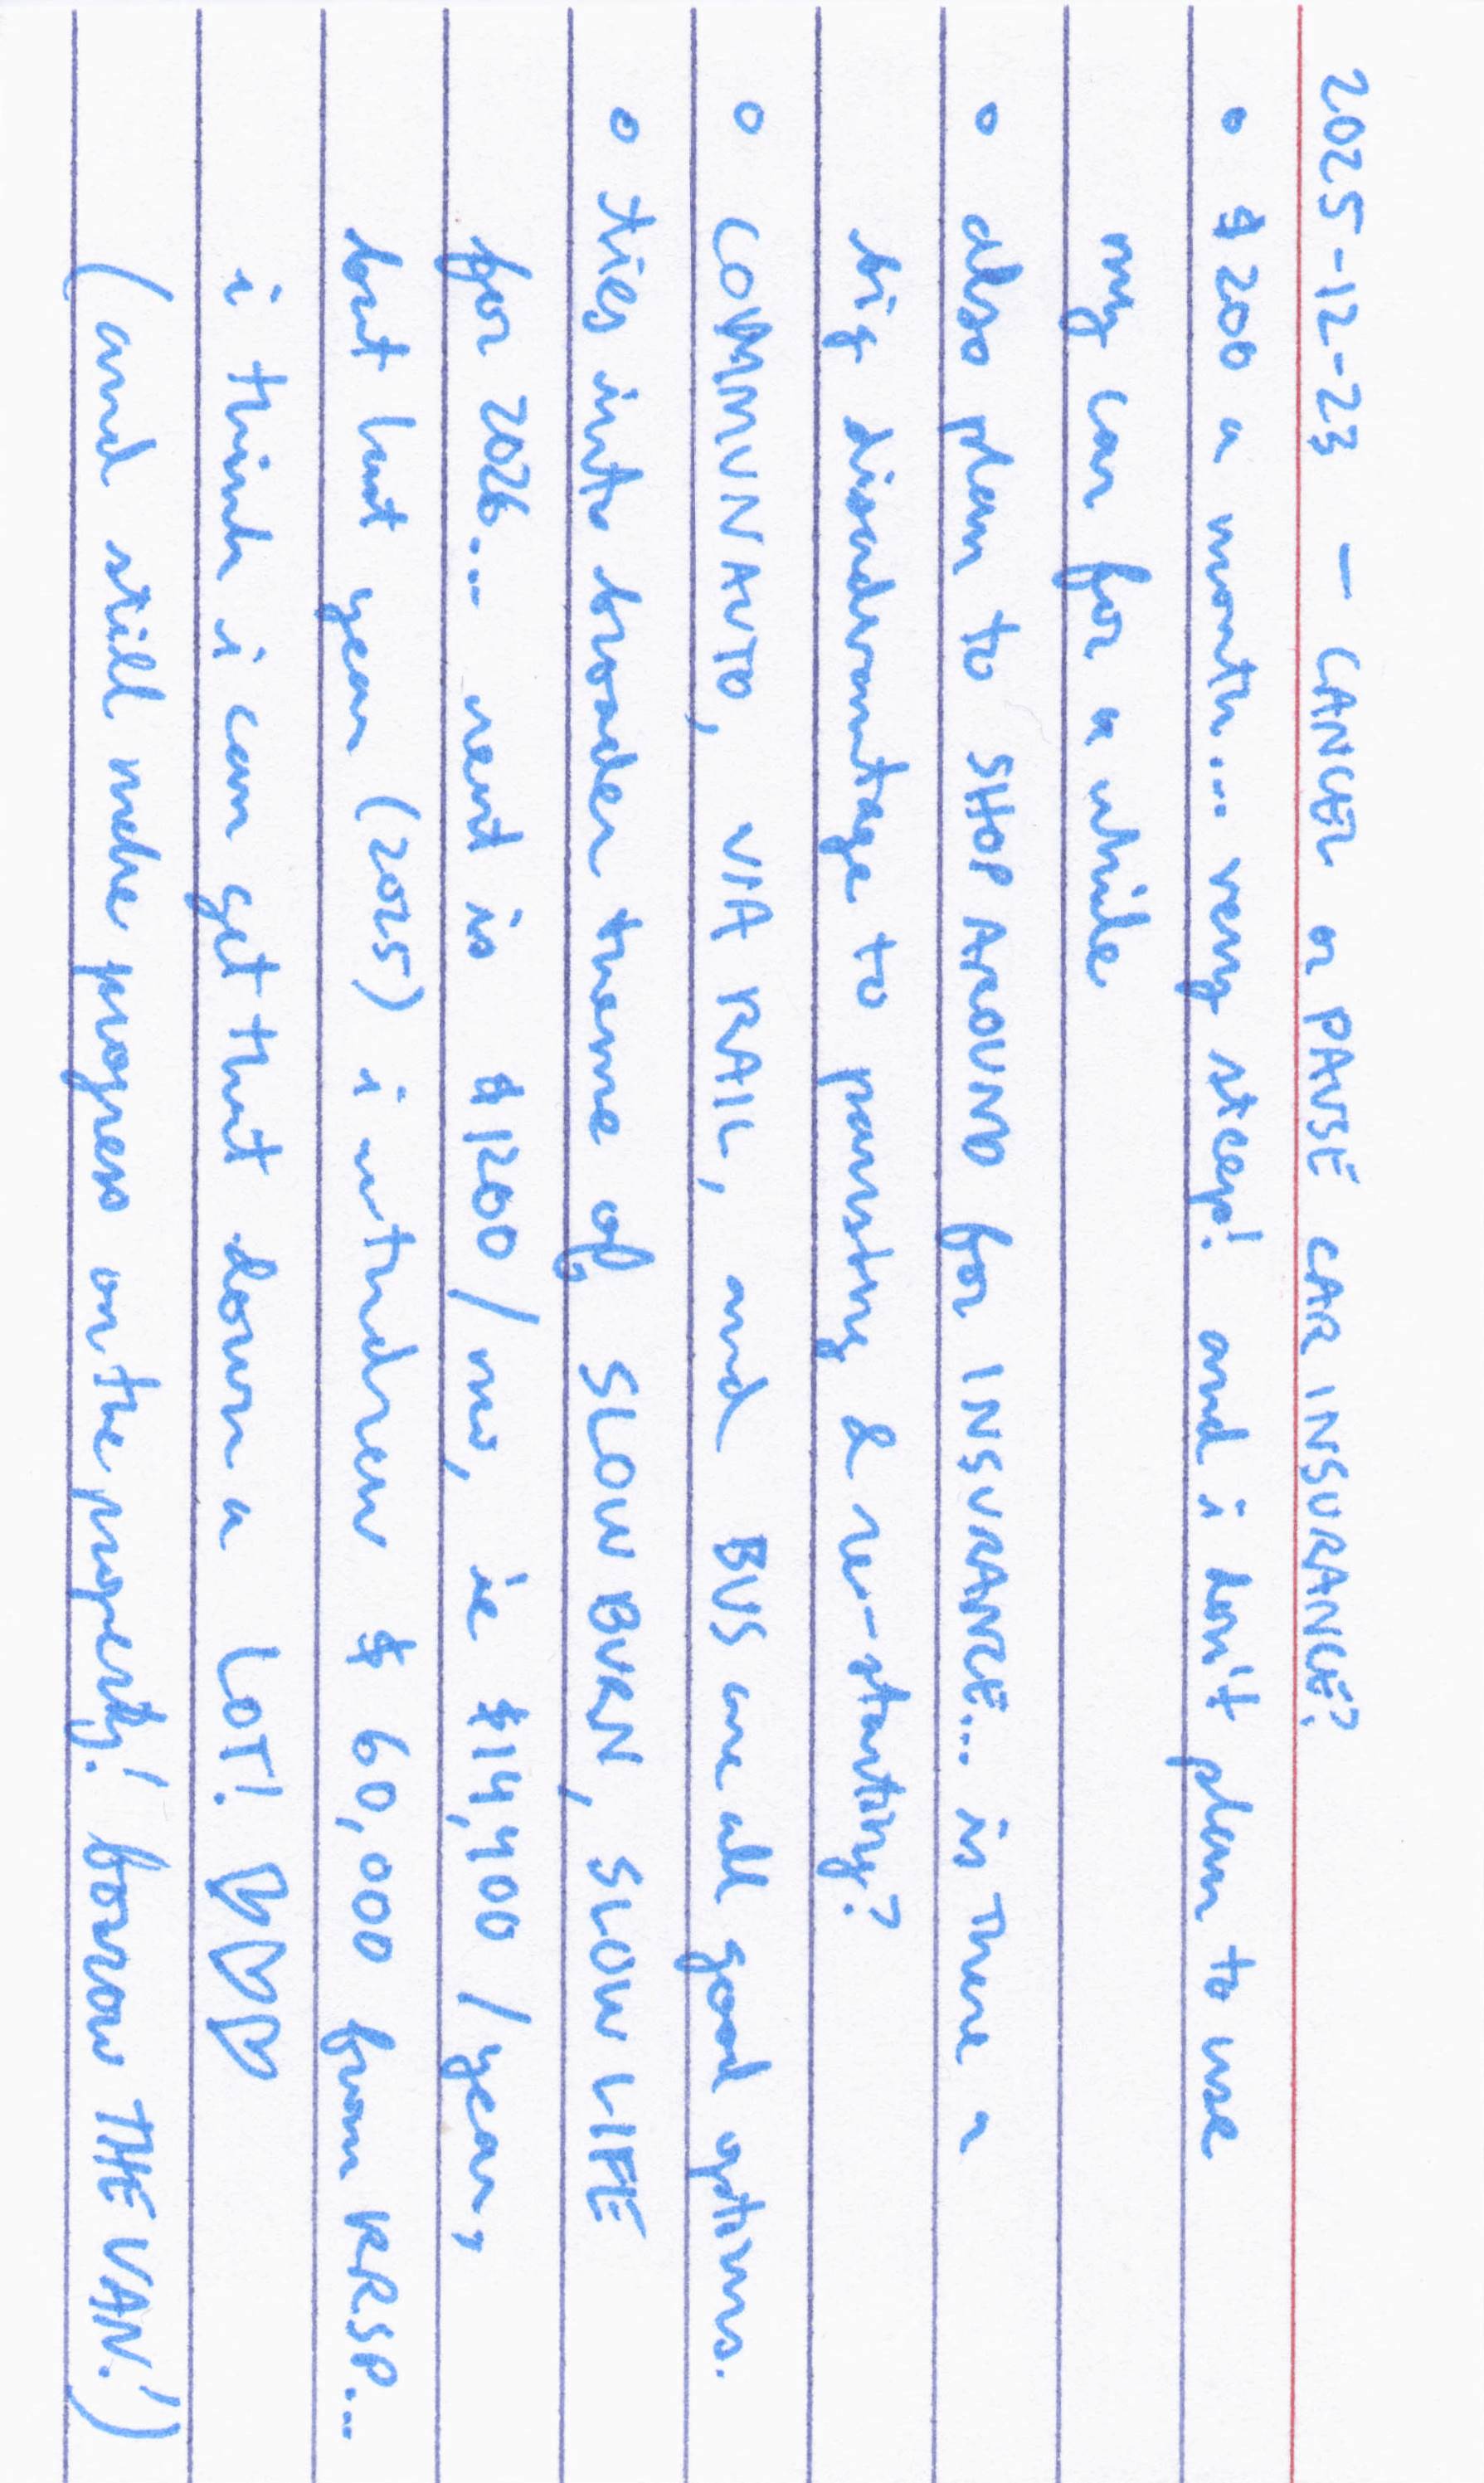 2025-12-23 — CANCEL or PAUSE CAR INSURANCE?
• $200 a month... very steep! and i don't plan to use
my car for a while
• also plan to SHOP AROUND for INSURANCE... is there a
big disadvantage to pausing & re-starting?
• COMMUNAUTO, VIA RAIL, and BUS are all good options.
• ties into broader theme of SLOW BURN, SLOW LIFE
for 2026... rent is $1200/mo, ie $14,400/year,
but last year (2025) i withdrew $60,000 from RRSP...
i think i can get that down a LOT! ♡♡♡
(and still make progress on the property! borrow THE VAN!)